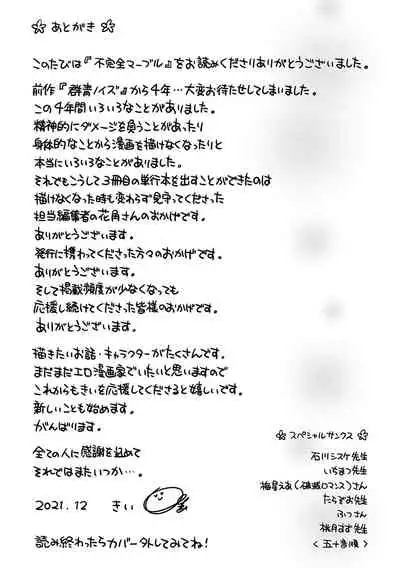 あとがき
このたびは『不完全マーブル』をお読みくださりありがとうございました。
前作『群青ノイズ』から4年…大変お待たせしてしまいました。
この4年間いろいろなことがありました。
精神的にダメージを負うことがあったり
身体的なことから漫画を描けなくなったりと
本当にいろいろなことがありました。
それでもこうして3冊目の単行本を出すことができたのは
描けなくなった時も変わらず見守ってくださった
担当編集者の花角さんのおかげです。
ありがとうございます。
発行に携わってくださった方々のおかげです。
ありがとうございます。
そして掲載頻度が少なくなっても
応援し続けてくださった皆様のおかげです。
ありがとうございます。
描きたいお話・キャラクターがたくさんです。
まだまだエロ漫画家でいたいと思いますので
これからもきいを応援してくださると嬉しいです。
新しいことも始めます。
がんばります。
全ての人に感謝を込めて
それではまたいつか…。
2021.12 きい
読み終わったらカバー外してみてね!
スペシャルサンクス
石川シスケ先生
いちまつ先生
梅星えあ(破滅ロマンス)さん
たらぞお先生
ふつさん
桃月すず先生
<五十音順>